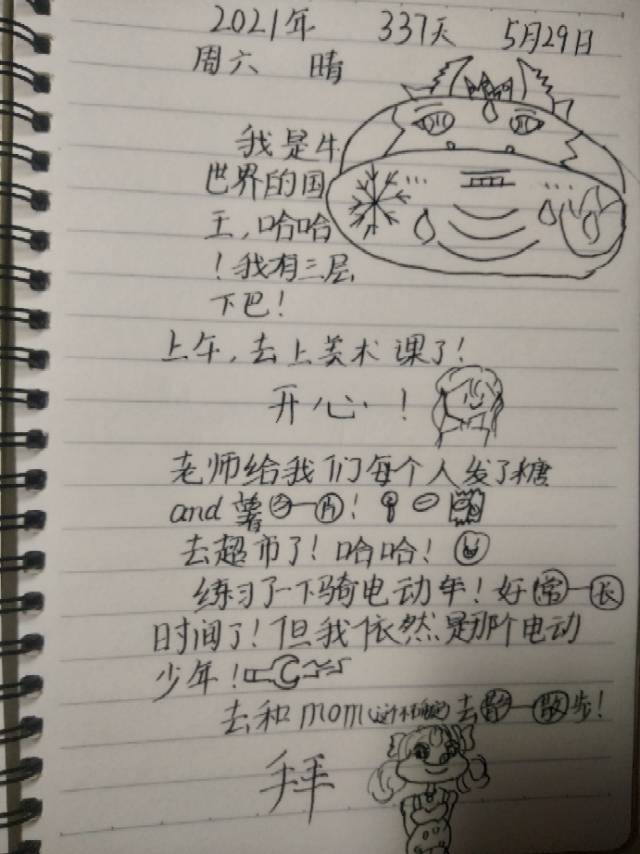 2021年 337天 5月29日
周六 晴
我是牛
世界的国
王,哈哈
!我有三层
下巴!
上午,去上美术课了!
开心!
老师给我们每个人发了糖
and薯 一片!
去超市了!哈哈!
练习了一下骑电动车!好常一长
时间了!但我依然是那个电动
少年!
去和mom 去散一散步!
拜